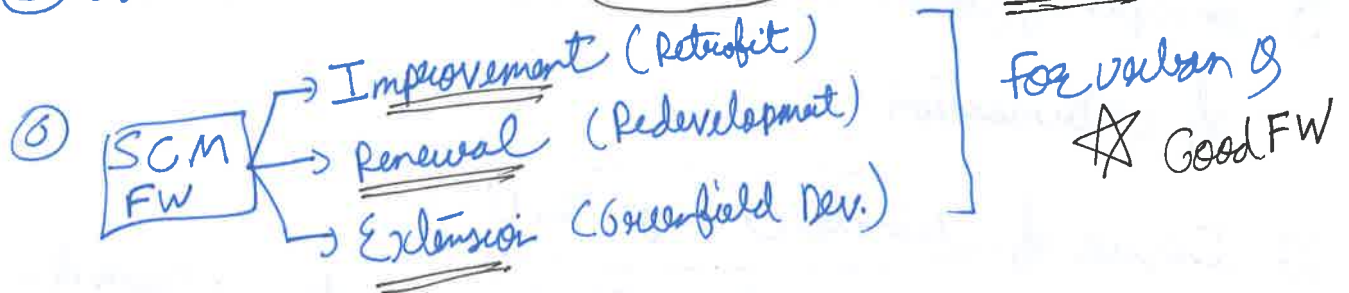 ⑥ SCM FW
→ Improvement (Retrofit)
→ Renewal (Redevelopment)
→ Extension (Greenfield Dev.)
For urban Q
☆ Good FW